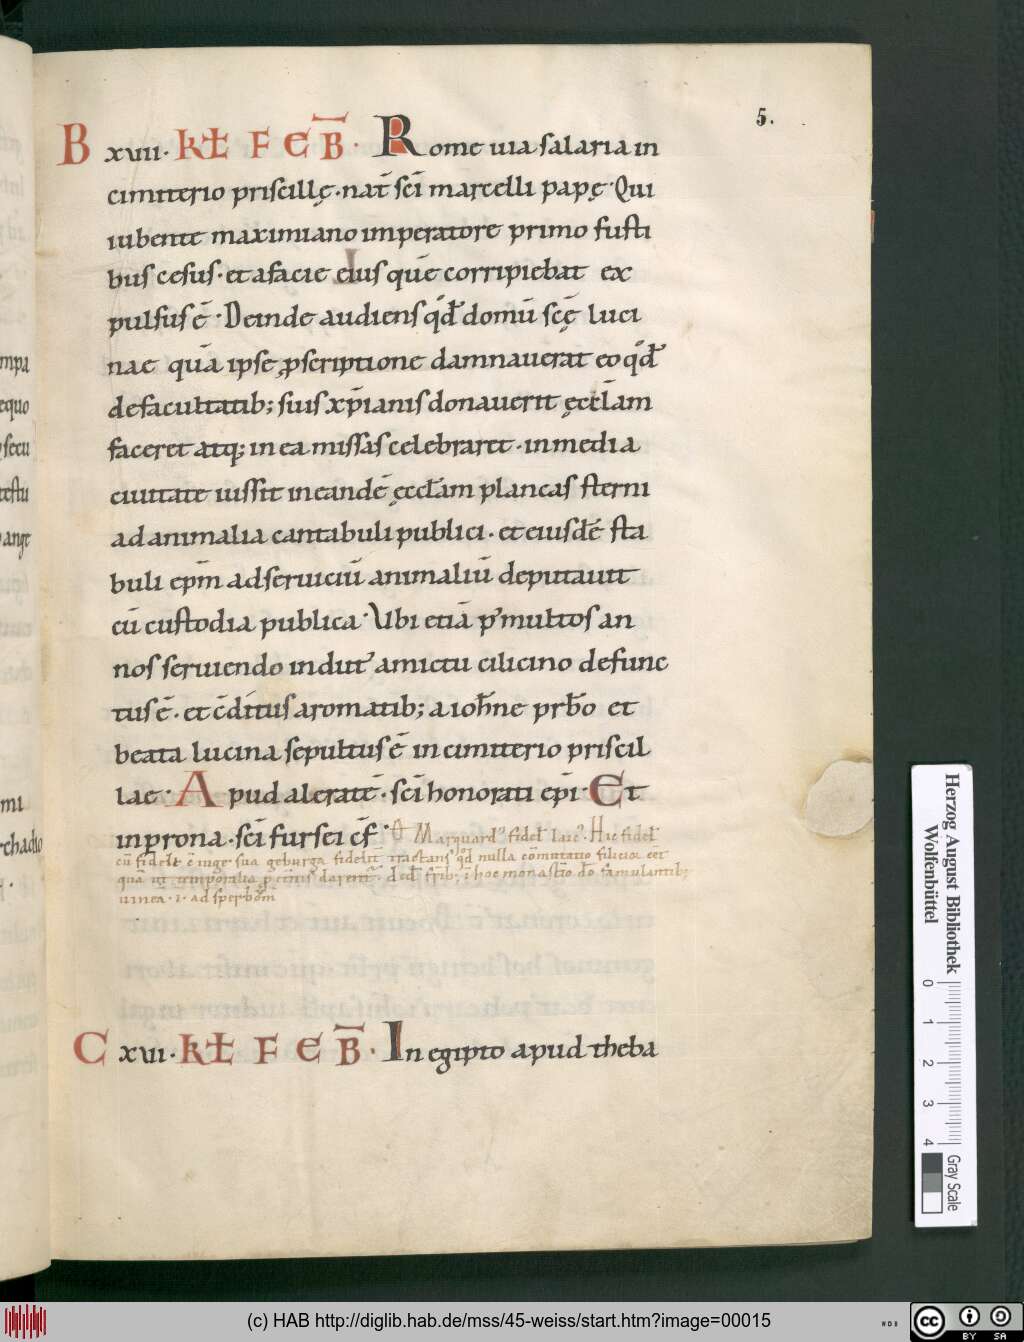 5.
B xvii · kƚ FEB̅ · Rome uia salaria in
cimiterio priscillę · nat̅ sc̅i marcelli papę · Qui
iubente maximiano imperatore primo fusti
bus cesus · et a facie eius que̅ corripiebat ex
pulsus e̅ · Deinde audiens qd̅ domu̅ sc̅ę luci
nae qua̅ ipse ꝓscriptione damnauerat eo qd̅
de facultatib; suis xp̅ianis donauerit ęccl̅am
faceret atq; in ea missas celebraret · in media
ciuitate iussit in eande̅ ęccl̅am plancas sterni
ad animalia cantabuli publici · et eiusde̅ sta
buli ep̅m ad seruiciu̅ animaliu̅ deputauit
cu̅ custodia publica · Ubi etia̅ p᷒ multos an
nos seruiendo indut᷒ amictu cilicino defunc
tus e̅ · et c̅ditus aromatib; a ioh̅ne prb̅o et
beata lucina sepultus e̅ in cimiterio priscil
lae · Apud alerate̅ · sc̅i honorati ep̅i · Et
in prona · sc̅i fursei c̅f · O Marquard᷒ fidel̅ laic᷒ · Hic fidel̅
cu̅ fidele c̅iuge sua geburga fidelit̅ tractans qd̅ nulla co̅mutatio felicior e̅et
qua̅ ut temporalia p̲ et̅nis darent᷒ · ded̅ frib̅; i̅ hoc monast̅io d̅o famulantib;
uinea · i · ad sperbo̅m
C xvi · kƚ FEB̅ · In egipto apud theba
mpa
equo
secu
testu
ange
mi
rchadio
Herzog August Bibliothek
Wolfenbüttel
0 1 2 3 4
Gray Scale
(c) HAB http://diglib.hab.de/mss/45-weiss/start.htm?image=00015
cc BY SA